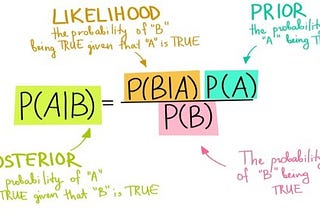 LIKELIHOOD
the probability of "B"
being TRUE given that "A" is TRUE
PRIOR
the probability
"A" being
P(A|B) = P(B|A) P(A)
P(B)
POSTERIOR
probability of "A"
TRUE given that "B" is TRUE
The probability
of "B" being
TRUE